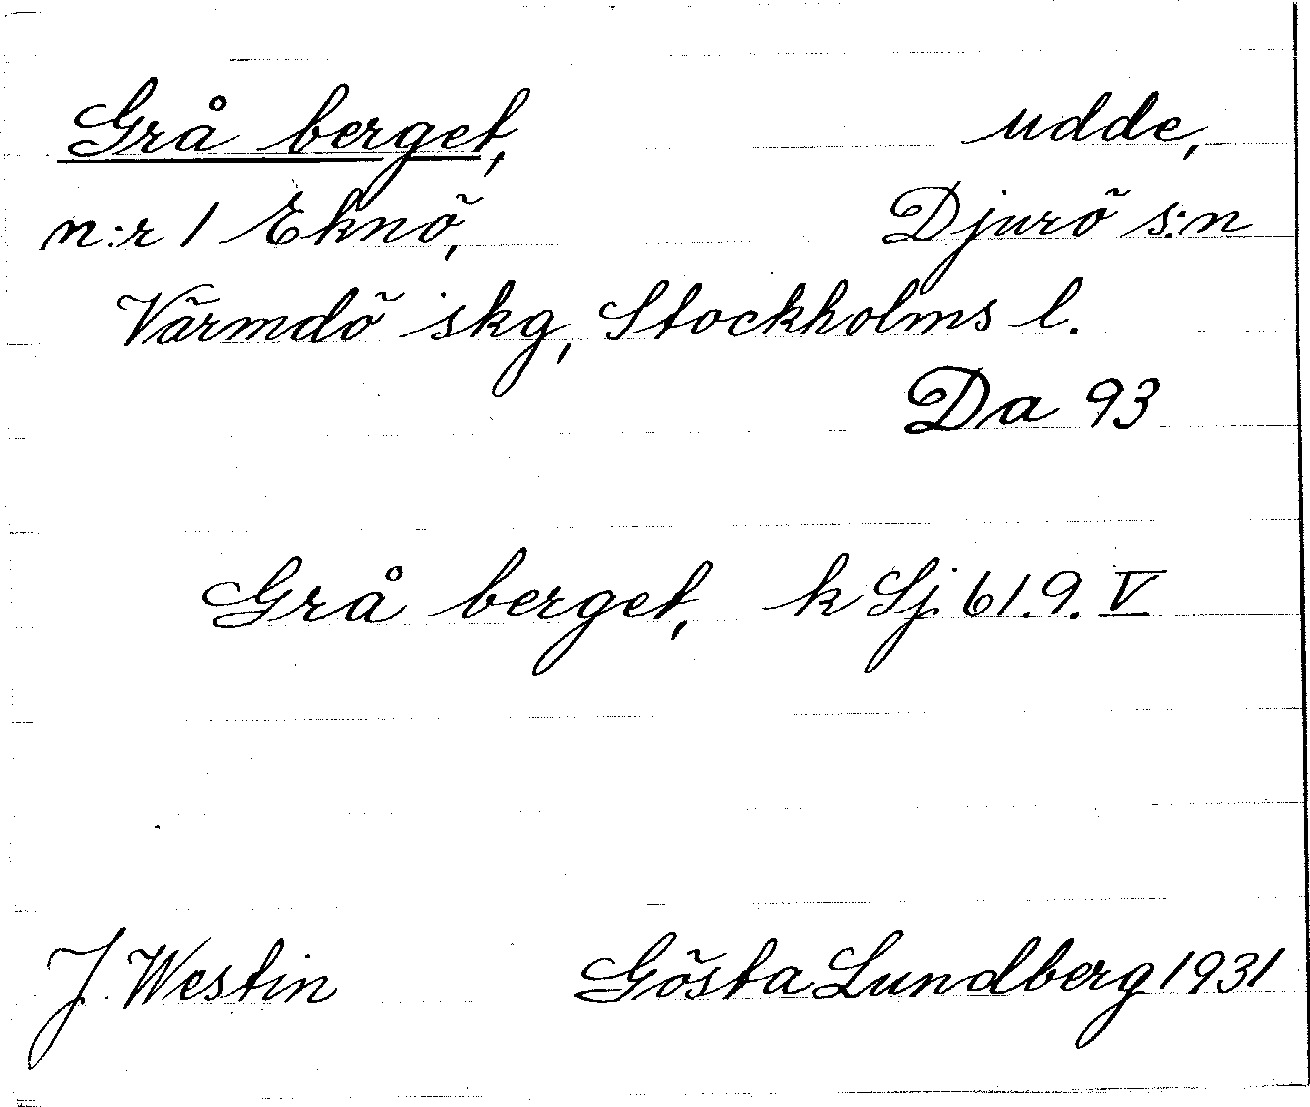 Grå berget, udde,
n:r 1 Eknö, Djurö s:n
Värmdö skg, Stockholms l.
Da 93
Grå berget, k Sj. 61.9. V
J. Westin Gösta Lundberg 1931